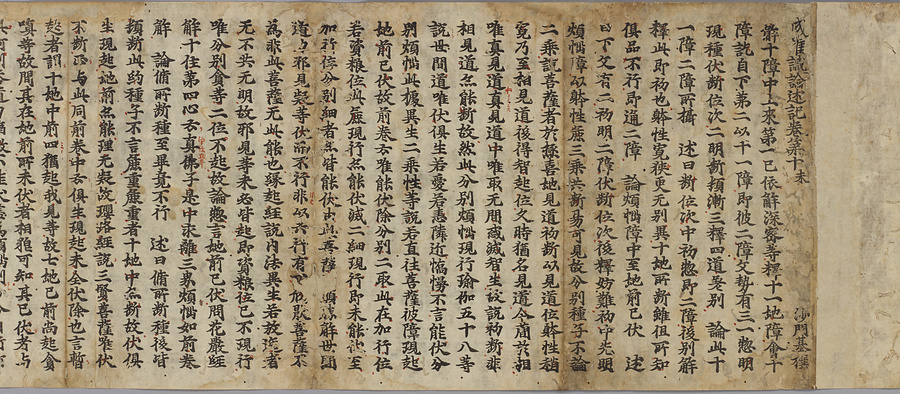 成唯識論述記卷第十末 沙門基撰
解十障中上來第一已依解深密等釋十一地障會十
障訖自下第二以十一障即彼二障文勢有三一惣明
現種伏斷位次二明斷頓漸三釋四道差別 論此十
一障二障所攝 述曰斷位次中初惣即二障後別解
釋此即初也躰性寬狹更无別異十地所斷雖俱所知
俱品不行即通二障 論煩惱障中至地前已伏 述
曰下文有二初明二障伏斷位次後釋妨難初中先明
煩惱障以躰性麁三乘共斷易可見故分別種子不論
二乘說菩薩者於極喜地見道初斷以見道位躰性相
寬乃至相見道後得智起位久時猶名見道今簡於相
唯真見道真見道中唯取无間或滅智生故說初斷非
相見道立能斷故然此分別煩惱現行瑜伽五十八等
說世間道唯伏俱生若愛若恚隣近憍慢不言能伏分
別煩惱此據異生二乘性等說若直往菩薩彼障現起
地前已伏故前卷云唯能伏除分別二取此在加行位
若資粮位麁現行名能伏滅二細現行即未能伏至
加行位分別細者亦皆能伏
道亦邪見疑等伏而不行非以六行有
為非此菩薩无此能也緣起經說內法異生若放逸者
无不共无明故邪見等未必皆起即資粮位已不現行
唯分別貪等二位不起故論惣言地前已伏問花嚴經
解十住第四心云真佛子是中求離三界煩惱如前卷
解 論脩所斷種至果竟不行 述曰脩所斷種後時
頓斷此約種子不言麁重麁重者十地中亦斷故伏俱
生現起地前亦能理无失故瓔珞經說三賢菩薩唯伏
不斷正与此同前卷中云俱生現起未全伏除也言暫
起者謂十地中前四猶起我見等故七地已前尚起貪
嗔等故問其在地前所未伏者相雖可知其已伏者与